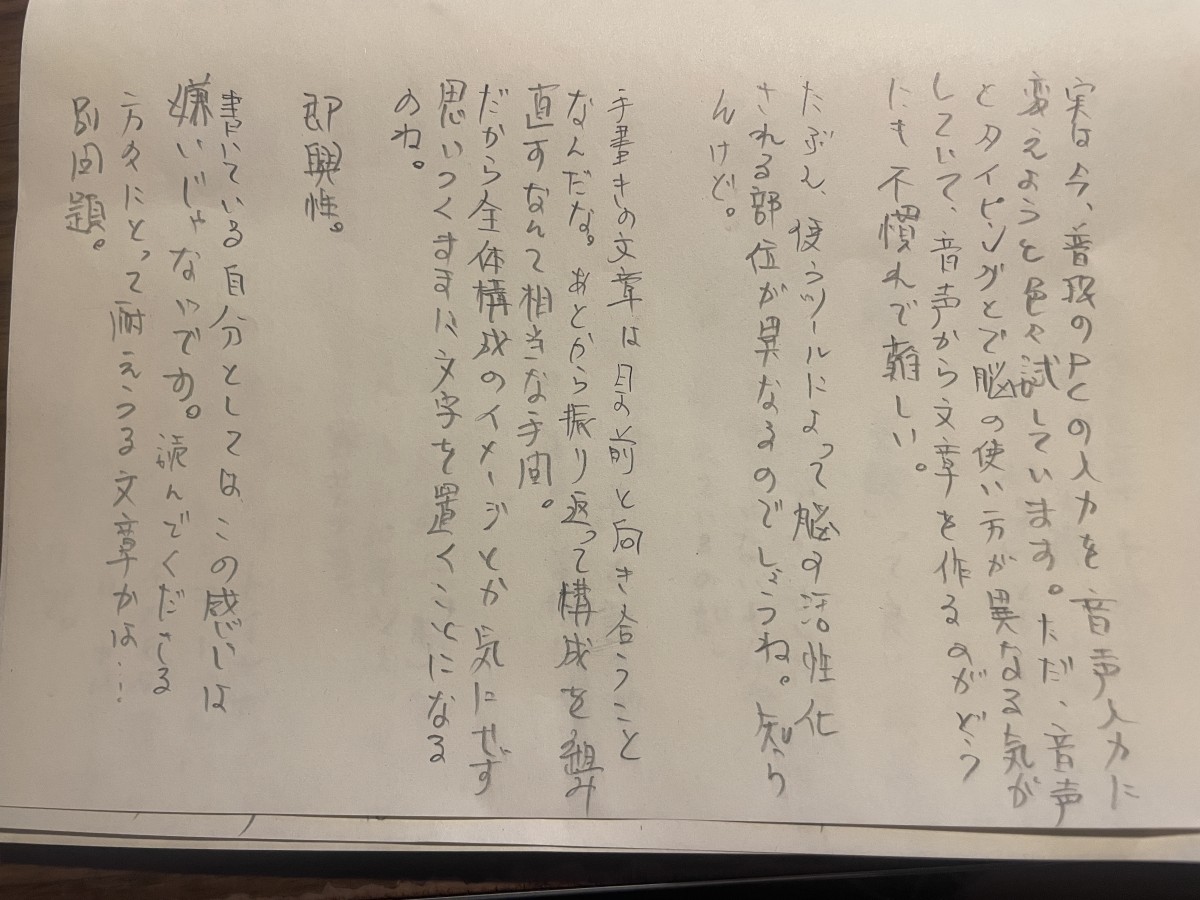 実は今、普段のPCの入力を音声入力に
変えようと色々試しています。ただ、音声
とタイピングとで脳の使い方が異なる気が
していて、音声から文章を作るのがどう
にも不慣れで難しい。
たぶん、使うツールによって脳の活性化
される部位が異なるのでしょうね。知ら
んけど。
手書きの文章は目の前と向き合うこと
なんだな。あとから振り返って構成を組み
直すなんて相当な手間。
だから全体構成のイメージとか気にせず
思いつくままに文字を置くことになる
のね。
即興性。
書いている自分としては、この感じは
嫌いじゃないです。読んでくださる
方々にとって耐えうる文章かは…
別問題。